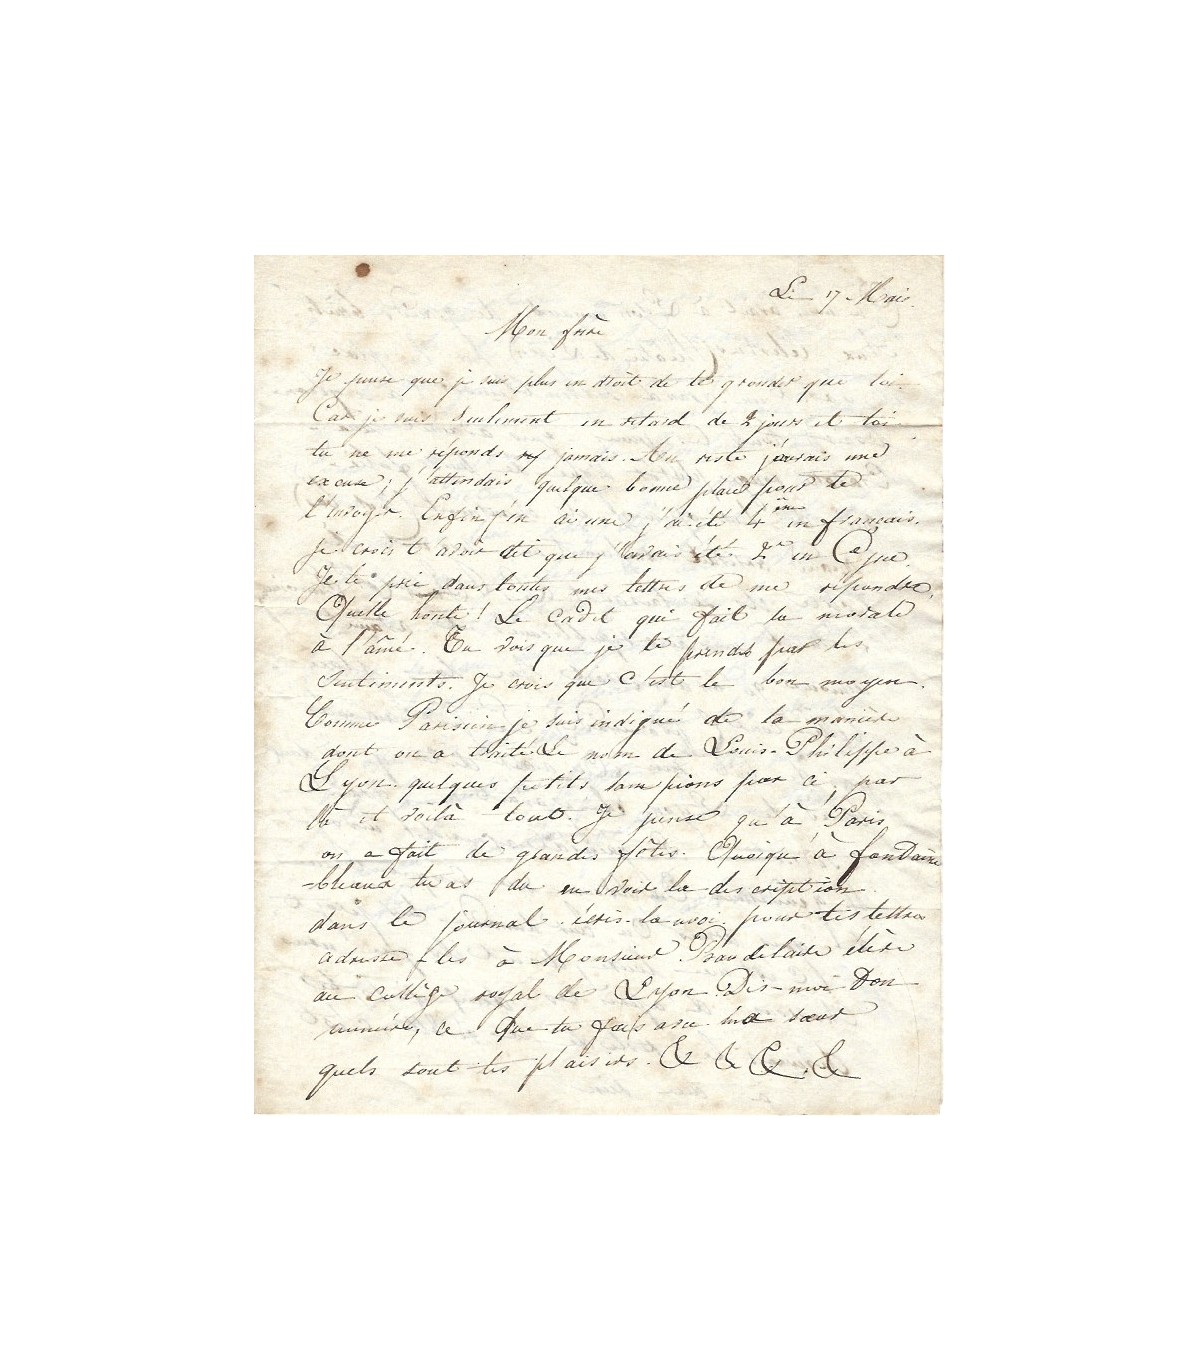 Le 17 Mai.
Mon frère
Je pense que je suis plus en droit de te gronder que toi.
Car je suis seulement en retard de 2 jours et toi
tu ne me réponds jamais. Au reste j'aurais une
excuse; j'attendais quelque bonne place pour te
l'envoyer. Enfin j'en ai une j'ai été 4ième en français.
Je crois t'avoir dit que j'avais été 2e en
Je te prie dans toutes mes lettres de me répondre.
Quelle honte! Le cadet qui fait la morale
à l'aîné. Tu vois que je te prends par les
sentiments. Je crois que c'est le bon moyen.
Comme Parisien je suis indigné de la manière
dont on a traité Le nom de Louis-Philippe à
Lyon. quelques petits lampions par ci, par
là et voilà tout. Je pense qu'à Paris
on a fait de grandes fêtes. Quoiqu'à fontaine
-bleaux tu as du en voir la description
dans le journal. écris-la moi. pour tes lettres
adresse-les à Monsieur Baudelaire élève
au collège royal de Lyon. Dis-moi ton
numéro, ce que tu fais avec ma sœur
quels sont tes plaisirs. & & & . &